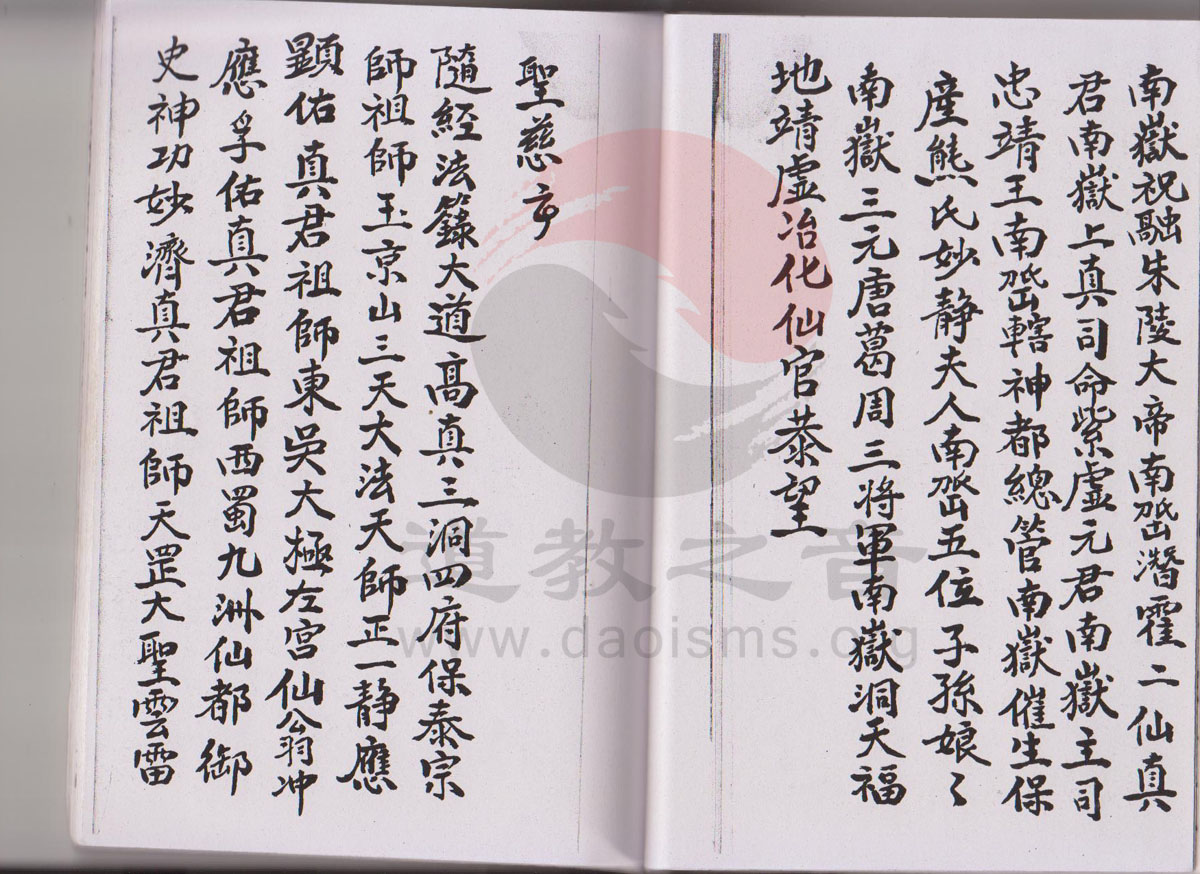 南嶽祝融朱陵大帝南嶽潛霍二仙真
君南嶽上真司命紫虛元君南嶽主司
忠靖王南嶽轄神都總管南嶽催生保
產熊氏妙靜夫人南嶽五位子孫娘〻
南嶽三元唐葛周三將軍南嶽洞天福
地靖虛治化仙官恭望
聖慈
隨經法籙大道高真三洞四府保泰宗
師祖師玉京山三天大法天師正一靜應
顕佑真君祖師東吳大極左宮仙公翁冲
應孚佑真君祖師西蜀九洲仙都御
史神功妙濟真君祖師天罡大聖雲雷
道教之音
www.daoisms.org